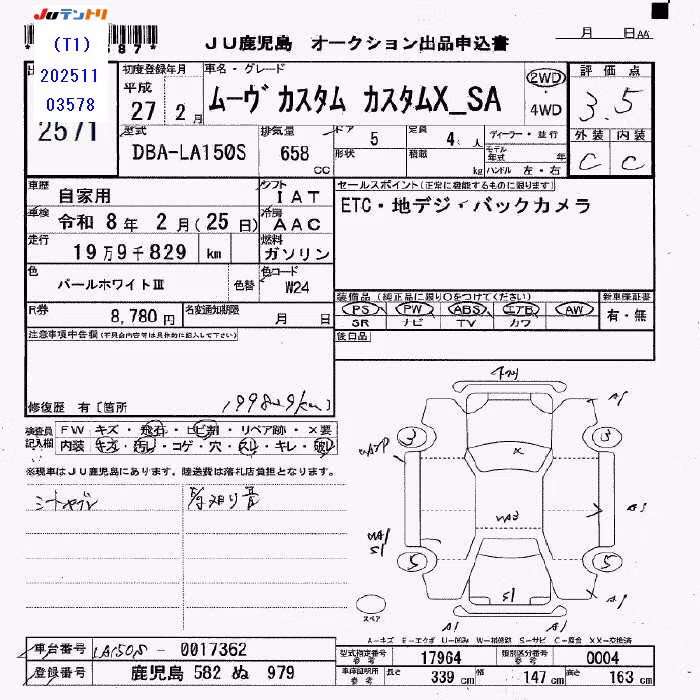 JUテントリ
(T1)
202511
03578
2571
JU鹿児島 オークション出品申込書
月 日 AA
初度登録年月
平成
27 2月
車名・グレード
ムーヴ カスタム カスタムX_SA
2WD
・
4WD
評価点
3.5
外装 内装
C C
型式
DBA-LA150S
排気量
658
cc
ドア
5
定員
4 人
形状
積載
kg
ディーラー・並行
モデル年式 年
ハンドル 左・右
車歴
自家用
シフト
IAT
車検
令和 8年 2月(25日)
冷房
AAC
走行
19万9千829 km
燃料
ガソリン
色
パールホワイトⅢ
色替
色コード
W24
R券
8,780円
名変通知期限
月 日
セールスポイント(正常に機能するものに限ります)
ETC・地デジ・バックカメラ
装備品(純正品に限り○をつけてください)
PS PW ABS エアB AW
SR ナビ TV カワ
新車保証書
有・無
後日品
注意事項申告欄(不具合内容等は具体的に記入して下さい)
修復歴 有〔箇所
199829km〕
検査員記入欄
FW キズ・飛石・ヒビ割・リペア跡・×要
内装 キズ・汚レ・コゲ・穴・スレ・キレ・破レ
※現車はJU鹿児島にあります。陸送費は落札店負担となります。
シートヤブレ
3
3
A3
5
5
S1
A1
A1
スペア
A-キズ E-エクボ U-凹み W-補修跡 S-サビ C-腐食 XX-交換済
車台番号
LA150S - 0017362
登録番号
鹿児島 582 ぬ 979
型式指定番号
参考
17964
類別区分番号
参考
0004
車庫証明用
参考
長さ
339 cm
幅
147 cm
高さ
163 cm